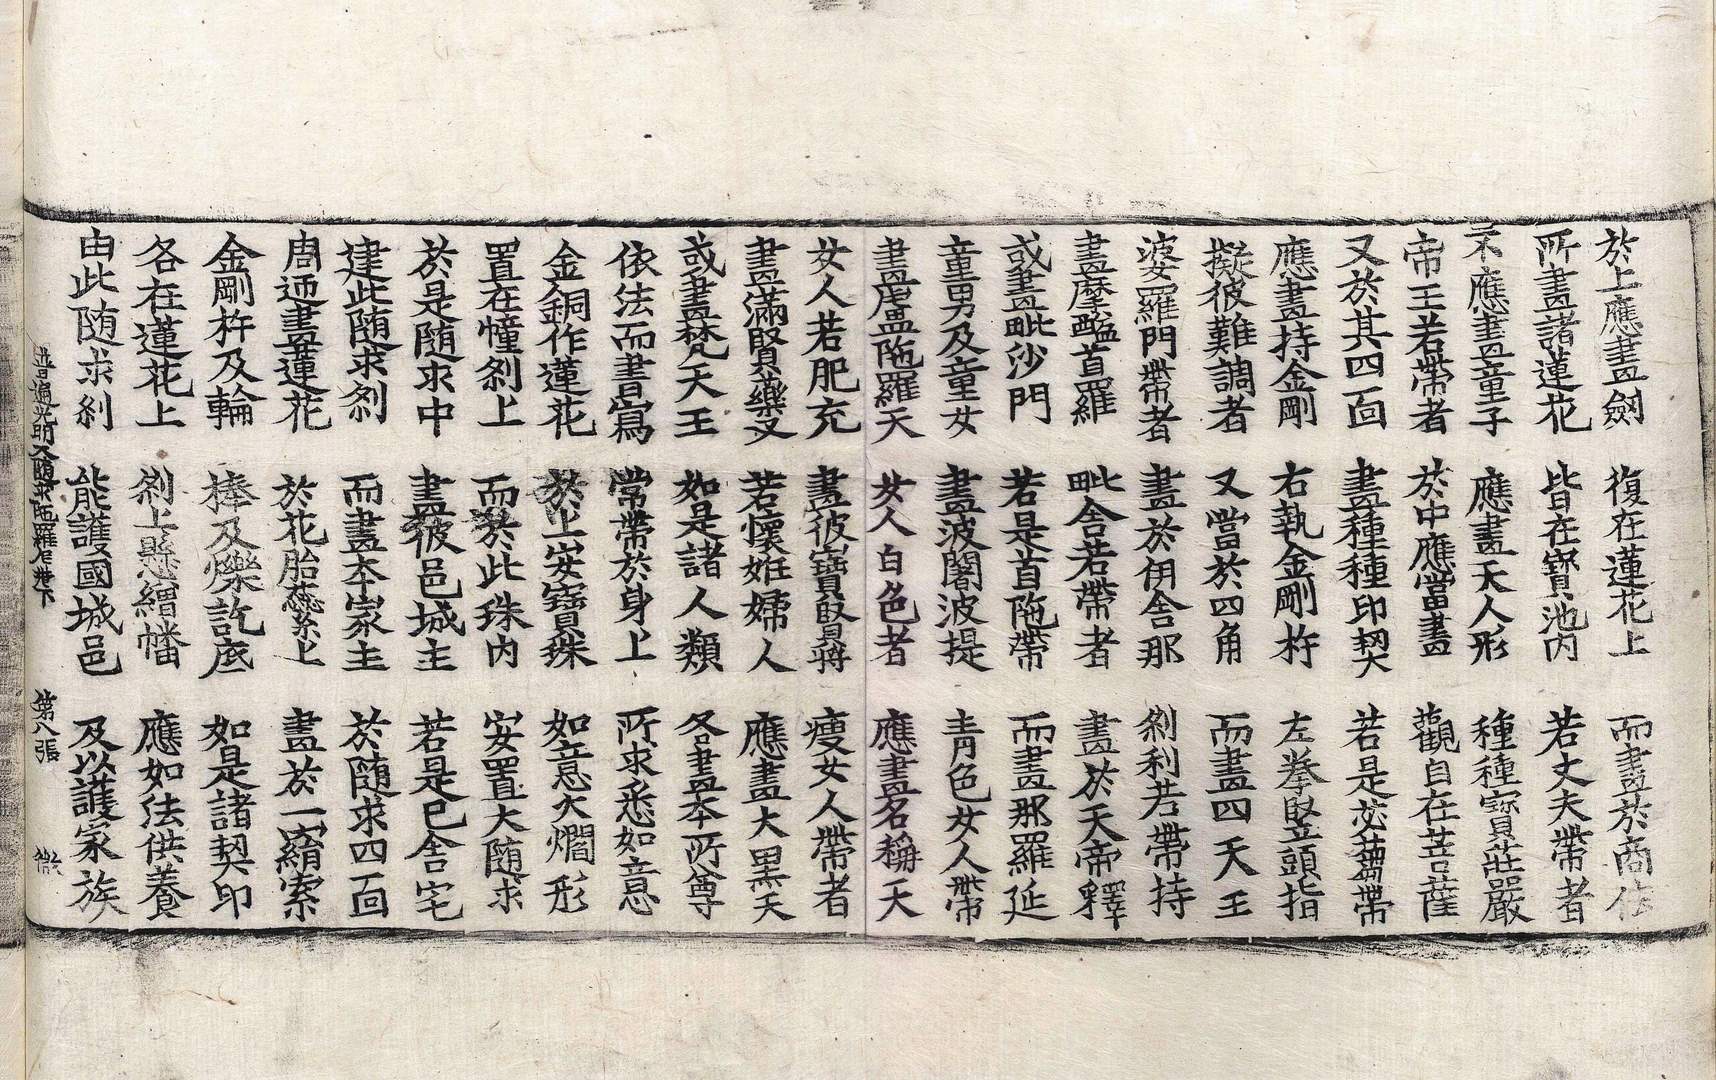 於上應畫劒 復在蓮花上 而畫於商佉
所畫諸蓮花 皆在寶池內 若丈夫帶者
不應畫童子 應畫天人形 種種寶莊嚴
帝王若帶者 於中應當畫 觀自在菩薩
又於其四面 畫種種印契 若是苾蒭帶
應畫持金剛 右執金剛杵 左拳竪頭指
擬彼難調者 又當於四角 而畫四天王
婆羅門帶者 畫於伊舍那 刹利若帶持
畫摩醯首羅 毗舍若帶者 畫於天帝釋
或畫毗沙門 若是首陁帶 而畫那羅延
童男及童女 畫波闍波提 青色女人帶
畫盧陁羅天 女人白色者 應畫名稱天
女人若肥充 畫彼寶賢將 瘦女人帶者
畫滿賢藥叉 若懷姙婦人 應畫大黑天
或畫梵天王 如是諸人類 各畫本所尊
依法而書寫 常帶於身上 所求悉如意
金銅作蓮花 於上安寶珠 如意火爓形
置在幢刹上 而於此珠內 安置大隨求
於是隨求中 畫彼邑城主 若是已舍宅
建此隨求刹 而畫本家主 於隨求四面
周迊畫蓮花 於花胎蘂上 畫於一𦌾索
金剛杵及輪 棒及爍訖底 如是諸契印
各在蓮花上 刹上懸繒幡 應如法供養
由此隨求刹 能護國城邑 及以護家族
普遍光明大隨求陁羅尼卷下 第八張